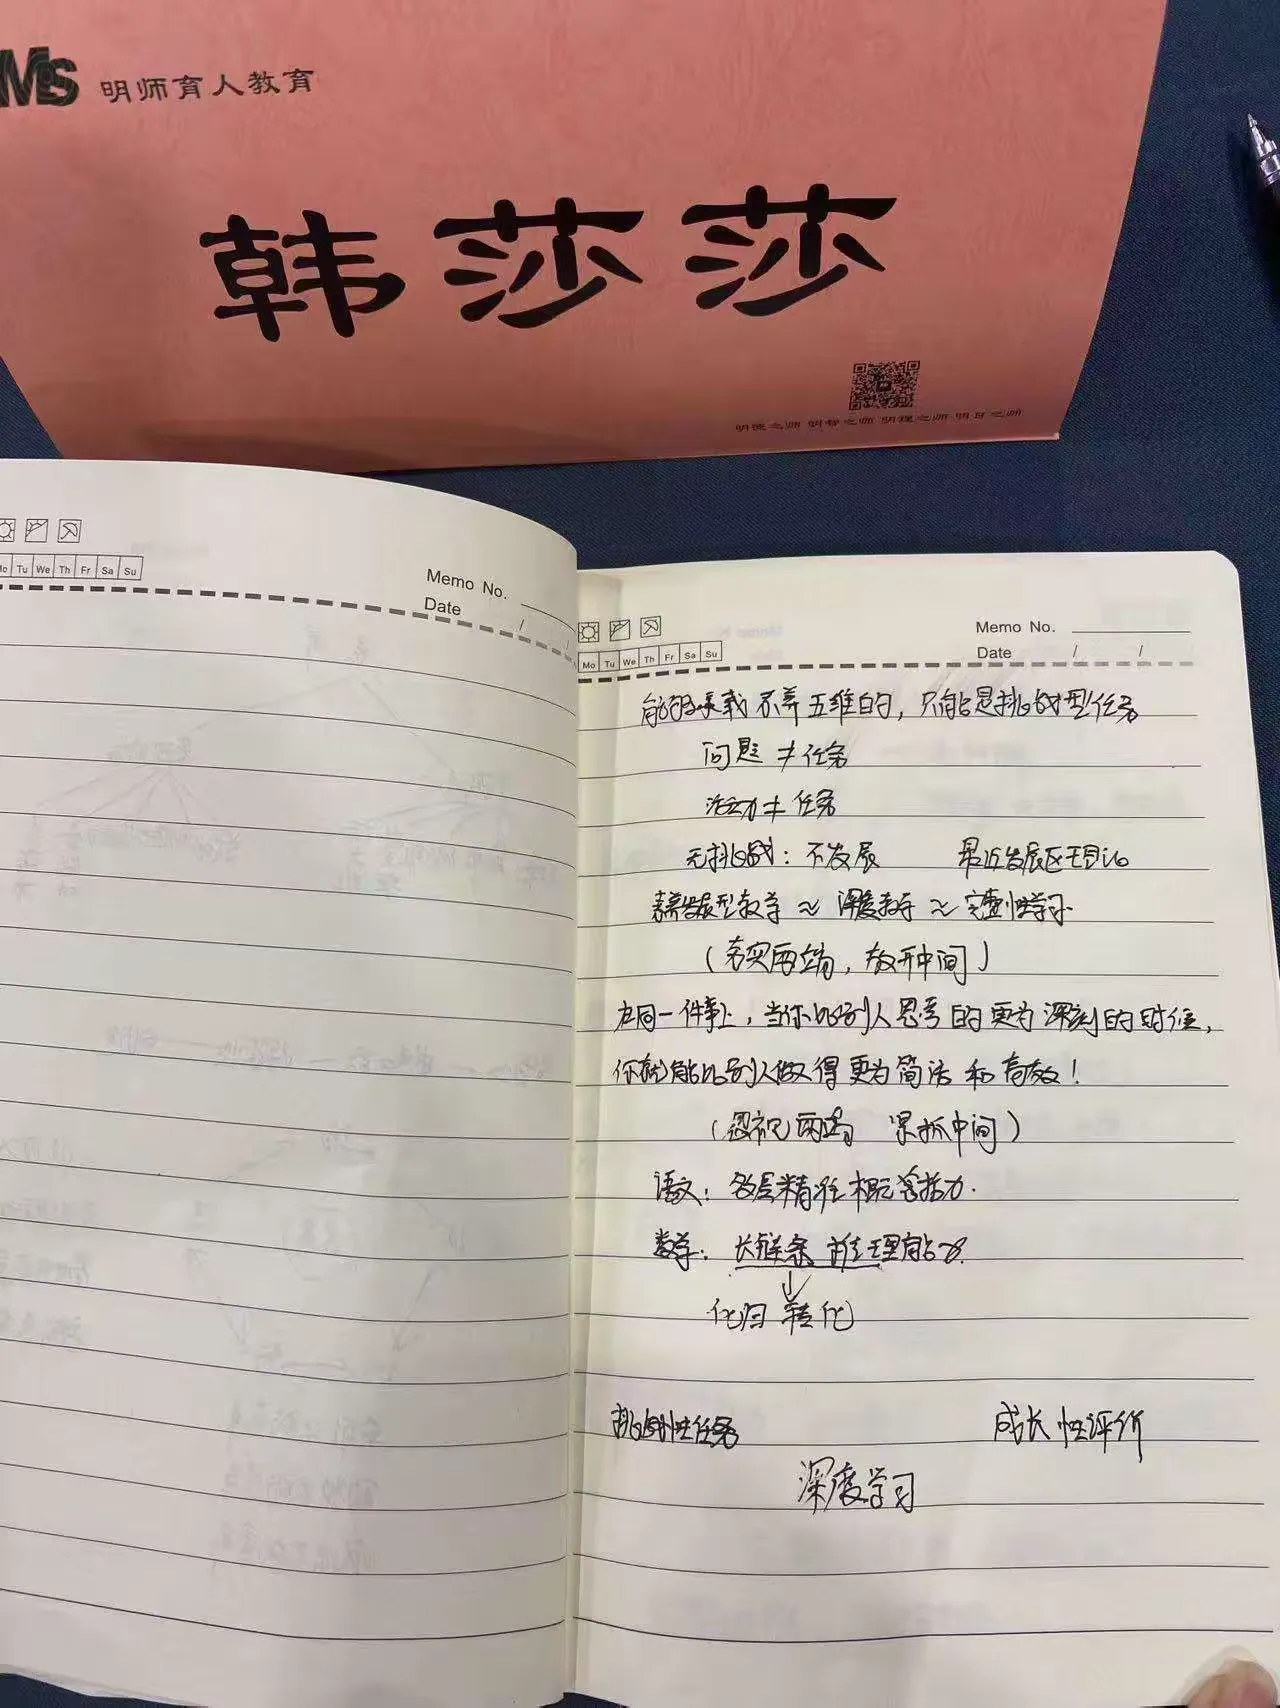 MS 明师育人教育
韩莎莎
明德之师 明智之师 明理之师 明日之师
Tu We Th Fr Sa Su
Memo No.
Date /
Mo Tu We Th Fr Sa Su
Memo No.
Date / /
能够承载 五维的，只能是挑战型任务
问题≠任务
活动≠任务
无挑战：不发展 最近发展区理论
素养发展型教学≈深度教学≈完整性学习
（夯实两端，放开中间）
在同一件事上，当你比别人思考的更为深刻的时候，
你就能比别人做得更为简洁和高效！
（忽视两端 紧抓中间）
语文：多层精准概括力．
数学：长链条推理能力．
化归 转化
挑战性任务 成长性评价
深度学习